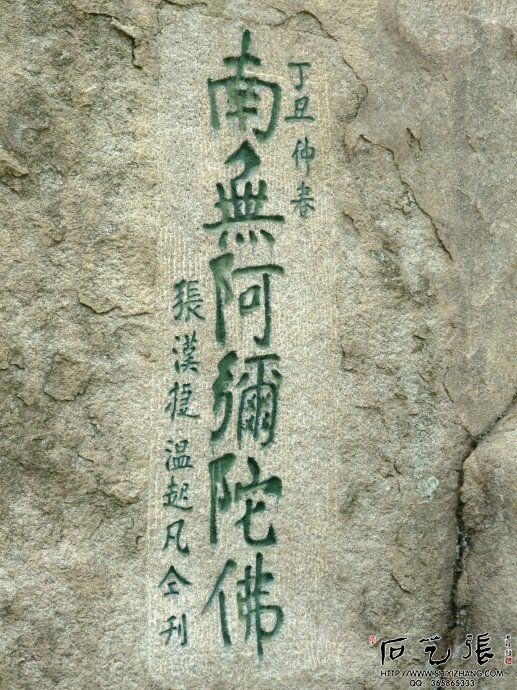 丁丑仲春
南無阿彌陀佛
張漢捷温起凡仝刊
石艺張
HTTP://WWW.SHIYIZHANG.COM
QQ: 365865333